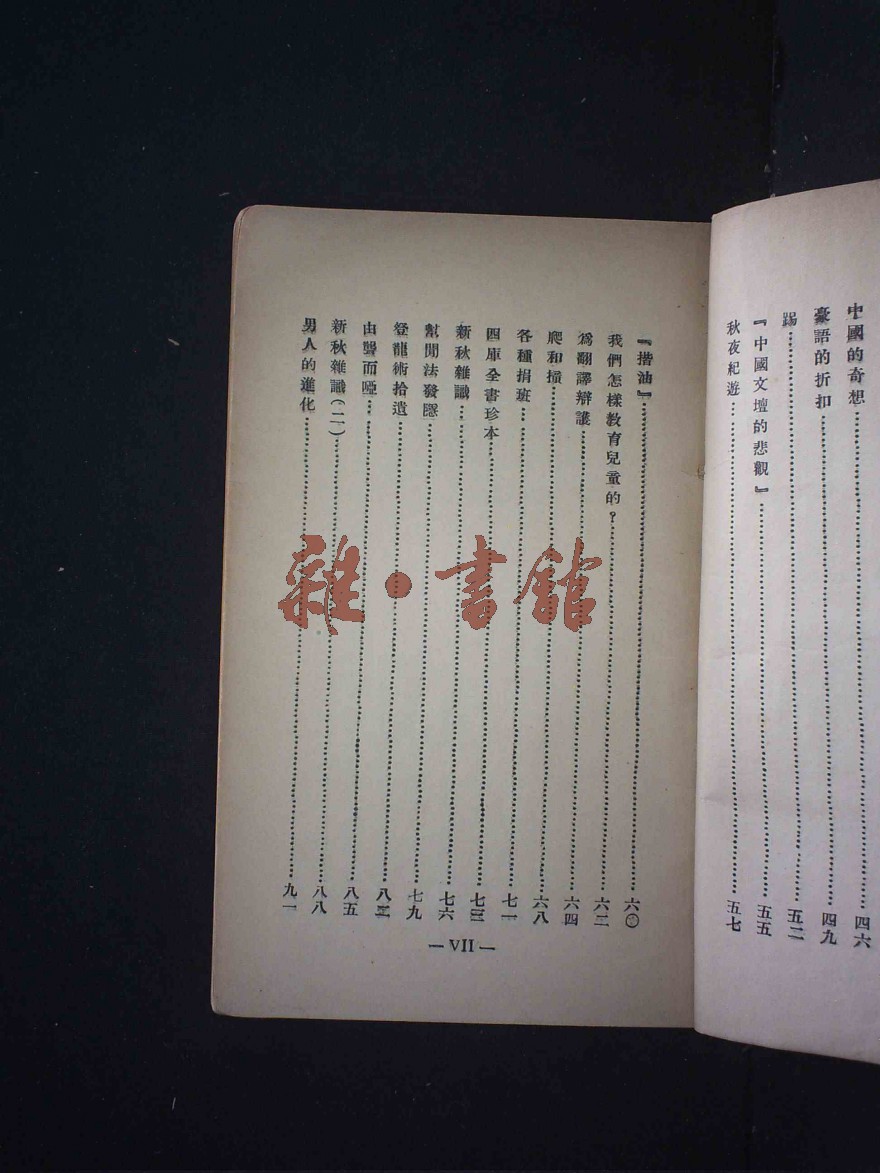 中國的奇想……四六
豪語的折扣……四九
踢……五二
『中國文壇的悲觀』……五五
秋夜紀遊……五七
『揩油』……六〇
我們怎樣教育兒童的？……六二
爲翻譯辯護……六四
爬和撞……六八
各種捐班……七一
四庫全書珍本……七三
新秋雜識……七六
幫閒法發隱……七九
登龍術拾遺……八二
由聾而啞……八五
新秋雜識（二）……八八
男人的進化……九一
— VII —
雜·書館